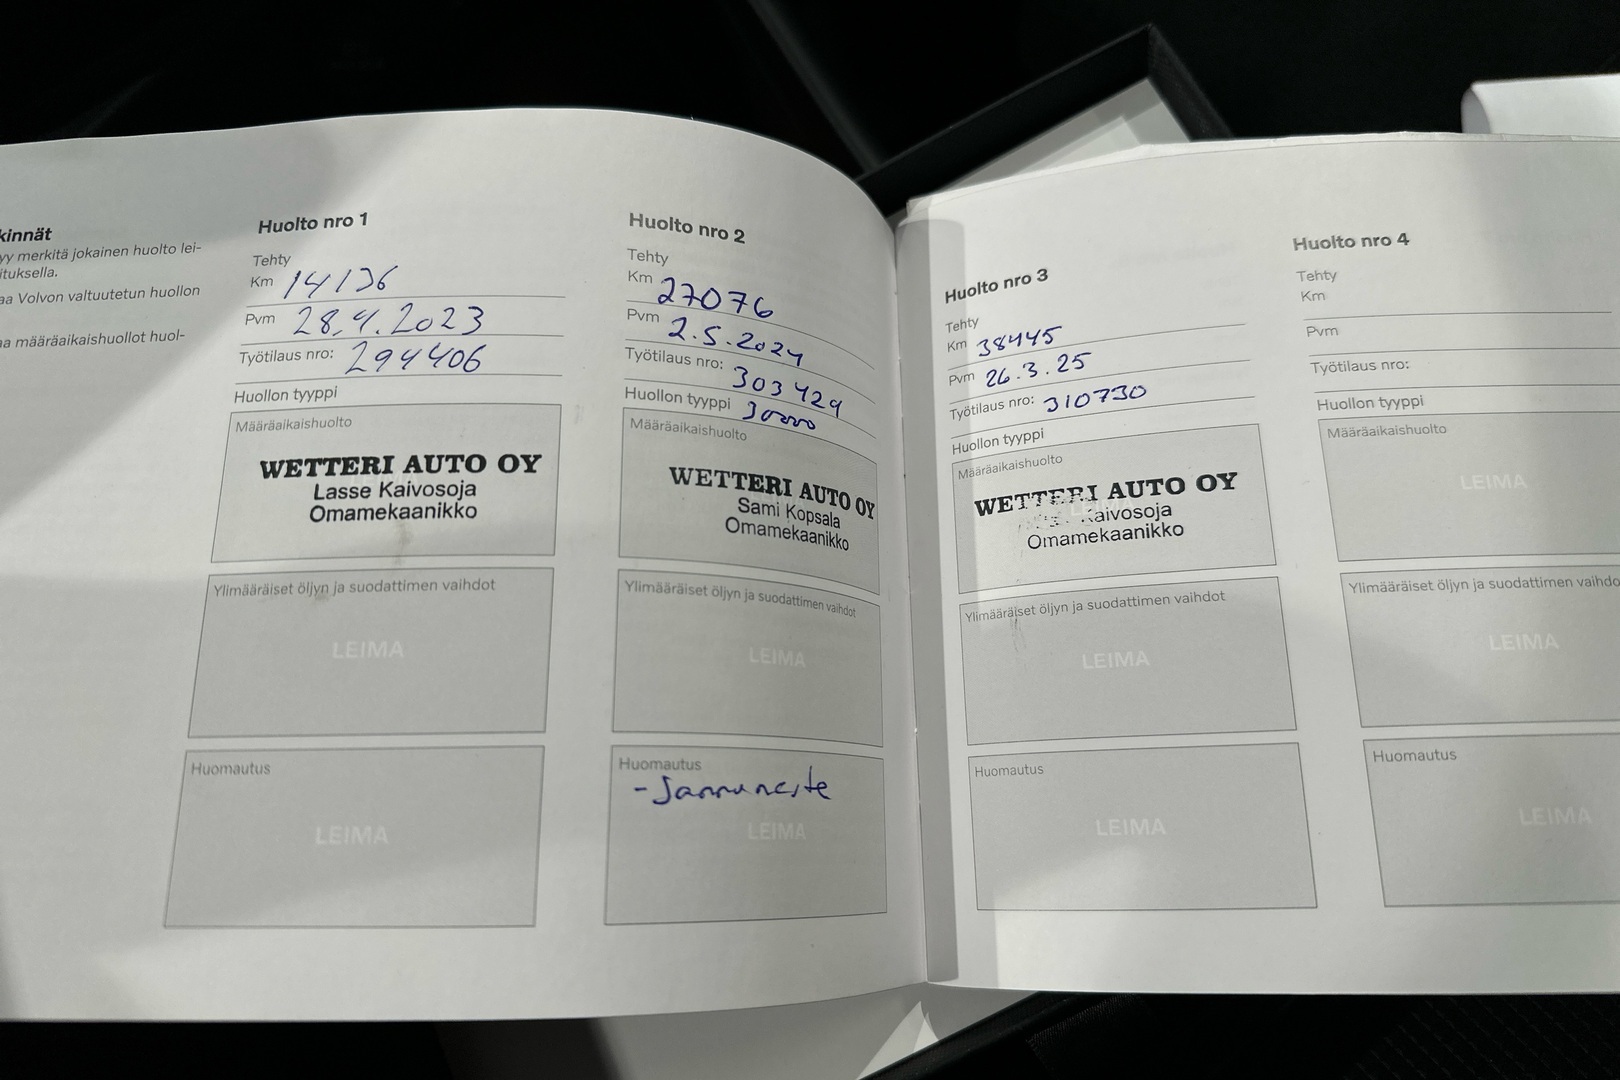 kinnät
yy merkitä jokainen huolto lei-
ituksella.
aa Volvon valtuutetun huollon
aa määräaikaishuollot huol-
Huolto nro 1
Tehty
Km 14136
Pvm 28.4.2023
Työtilaus nro: 294406
Huollon tyyppi
Määräaikaishuolto
WETTERI AUTO OY
Lasse Kaivosoja
Omamekaanikko
Ylimääräiset öljyn ja suodattimen vaihdot
LEIMA
Huomautus
LEIMA
Huolto nro 2
Tehty
Km 27076
Pvm 2.5.2024
Työtilaus nro: 303429
Huollon tyyppi 30000
Määräaikaishuolto
WETTERI AUTO OY
Sami Kopsala
Omamekaanikko
Ylimääräiset öljyn ja suodattimen vaihdot
LEIMA
Huomautus
- Jarruneste
LEIMA
Huolto nro 3
Tehty
Km 38445
Pvm 26.3.25
Työtilaus nro: 310730
Huollon tyyppi
Määräaikaishuolto
WETTERI AUTO OY
Kaivosoja
Omamekaanikko
Ylimääräiset öljyn ja suodattimen vaihdot
LEIMA
Huomautus
LEIMA
Huolto nro 4
Tehty
Km
Pvm
Työtilaus nro:
Huollon tyyppi
Määräaikaishuolto
LEIMA
Ylimääräiset öljyn ja suodattimen vaihdo
LEIMA
Huomautus
LEIMA